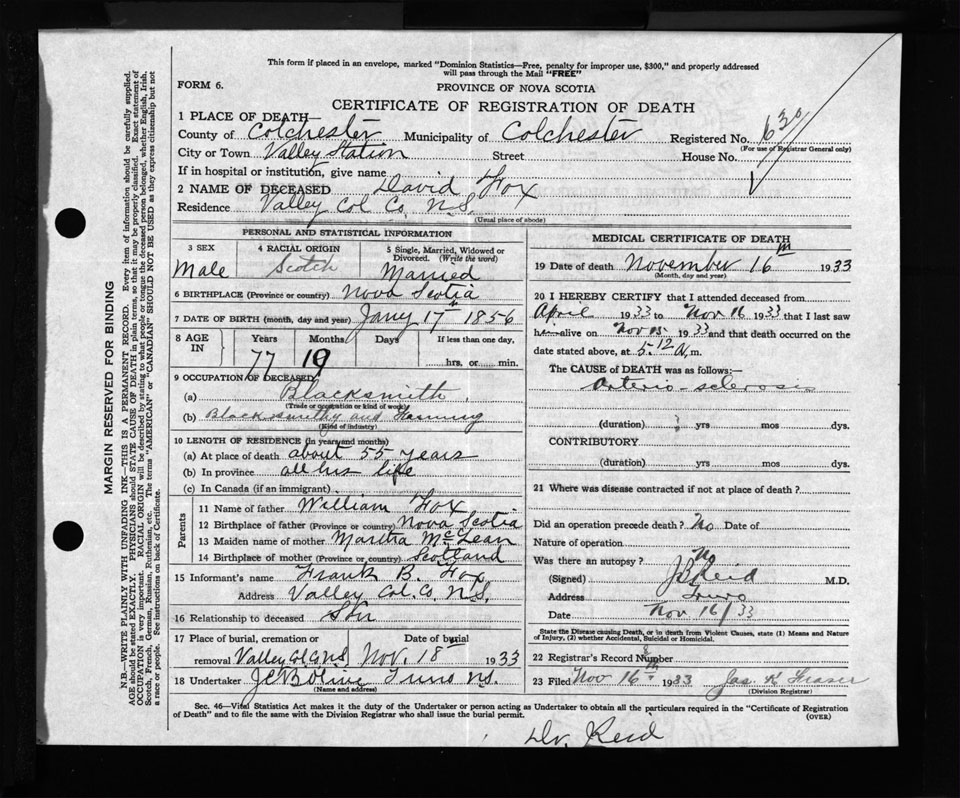 This form if placed in an envelope, marked "Dominion Statistics—Free, penalty for improper use, $300," and properly addressed
will pass through the Mail "FREE"
FORM 6.
PROVINCE OF NOVA SCOTIA
CERTIFICATE OF REGISTRATION OF DEATH
1 PLACE OF DEATH—
County of Colchester Municipality of Colchester Registered No. 630
(For use of Registrar General only)
City or Town Valley Station Street House No.
If in hospital or institution, give name
2 NAME OF DECEASED David Fox
Residence Valley Col Co. N.S.
(Usual place of abode)
PERSONAL AND STATISTICAL INFORMATION
3 SEX Male
4 RACIAL ORIGIN Scotch
5 Single, Married, Widowed or
Divorced. (Write the word)
Married
6 BIRTHPLACE (Province or country) Nova Scotia
7 DATE OF BIRTH (month, day and year) Jany 17th 1856
8 AGE IN
Years Months Days If less than one day,
77 19 hrs. or min.
9 OCCUPATION OF DECEASED
(a) Blacksmith
(Trade or occupation or kind of work)
(b) Blacksmithy and Farming
(Kind of industry)
10 LENGTH OF RESIDENCE (in years and months)
(a) At place of death about 55 years
(b) In province all his life
(c) In Canada (if an immigrant)
Parents
11 Name of father William Fox
12 Birthplace of father (Province or country) Nova Scotia
13 Maiden name of mother Martha McLean
14 Birthplace of mother (Province or country) Scotland
15 Informant's name Frank B. Fox
Address Valley Col. Co. N.S.
16 Relationship to deceased Son
17 Place of burial, cremation or Date of burial
removal Valley Col Co NS Nov. 18th 1933
18 Undertaker Truro N.S.
(Name and address)
MEDICAL CERTIFICATE OF DEATH
19 Date of death November 16th 1933
(Month, day and year)
20 I HEREBY CERTIFY that I attended deceased from
April 1933 to Nov 16 1933 that I last saw
him alive on Nov 15 1933 and that death occurred on the
date stated above, at 5.12 A m.
The CAUSE of DEATH was as follows:
Arterio-sclerosis
(duration) ? yrs mos dys.
CONTRIBUTORY
(duration) yrs mos dys.
21 Where was disease contracted if not at place of death?
Did an operation precede death? No Date of
Nature of operation
Was there an autopsy? No
(Signed) J B Reid M.D.
Address Truro
Date Nov 16/33
State the Disease causing Death, or in death from Violent Causes, state (1) Means and Nature
of Injury, (2) whether Accidental, Suicidal or Homicidal.
22 Registrar's Record Number
23 Filed Nov 16th 1933 Jas. K Fraser
(Division Registrar)
Sec. 46—Vital Statistics Act makes it the duty of the Undertaker or person acting as Undertaker to obtain all the particulars required in the "Certificate of Registration
of Death" and to file the same with the Division Registrar who shall issue the burial permit. (OVER)
Dr. Reid
MARGIN RESERVED FOR BINDING
N.B.—WRITE PLAINLY WITH UNFADING INK—THIS IS A PERMANENT RECORD. Every item of information should be carefully supplied.
AGE should be stated EXACTLY. PHYSICIANS should STATE CAUSE OF DEATH in plain terms, so that it may be properly classified. Exact statement of
OCCUPATION is very important. RACIAL ORIGIN will be described by stating to what people or tongue the deceased person belonged, whether English, Irish,
Scotch, French, German, Russian, Ruthenian, etc. The terms "AMERICAN" or "CANADIAN" SHOULD NOT BE USED as they express citizenship but not
a race or people. See instructions on back of Certificate.